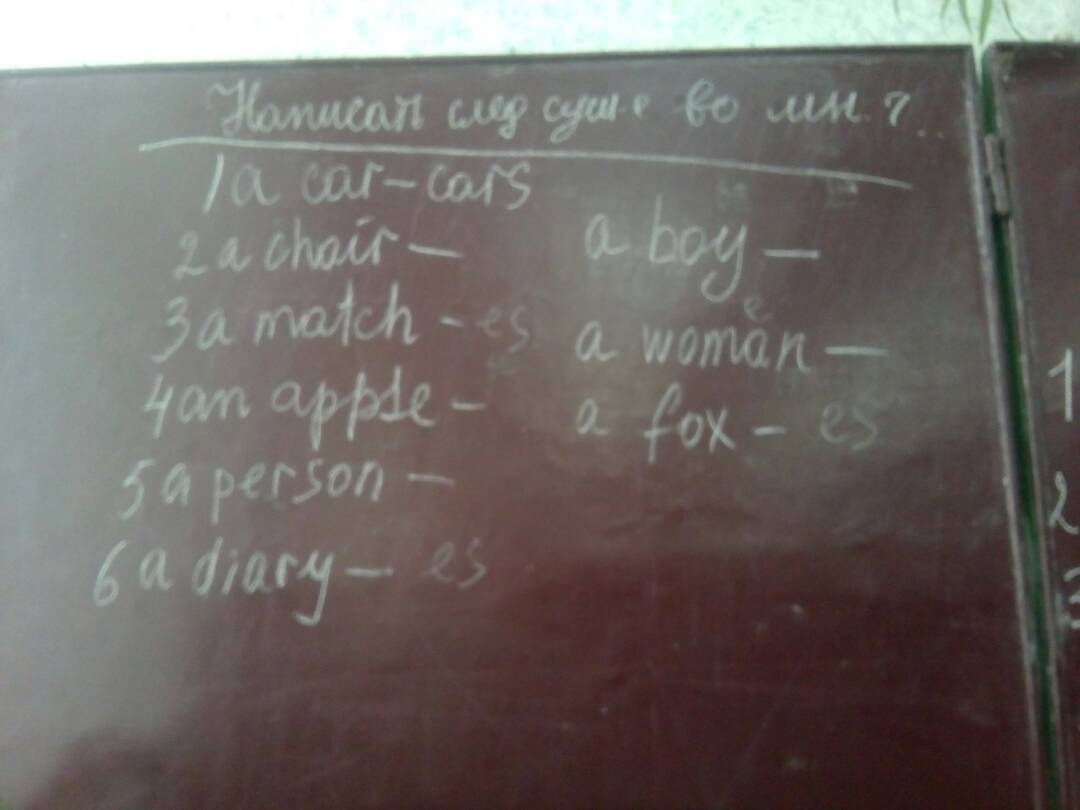 Написать след сущ. во мн. ч.
1 a car – cars
2 a chair –
3 a match – es
4 an apple –
5 a person –
6 a diary – es
a boy –
e
a woman –
a fox – es
1
2
3